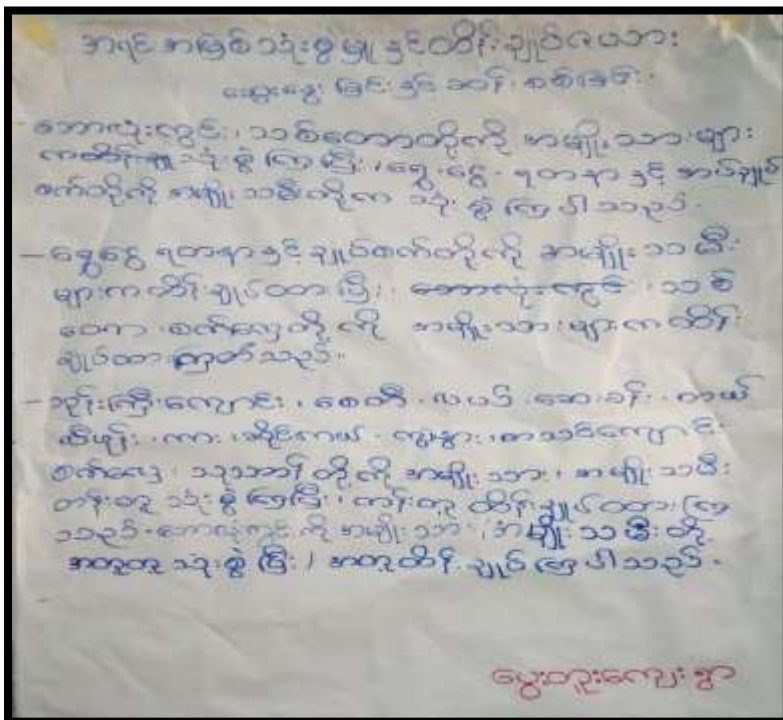 အရင်းအမြစ်သုံးစွဲမှုနှင့်ထိန်းချုပ်ထားသား
ဆွေးနွေးခြင်းနှင့်ဆန်းစစ်ခြင်း
ဘောလုံးကွင်း၊ သစ်တောတို့ကို အမျိုးသားများ
ကထိန်းချူသုံးစွဲကြပြီး၊ ရွှေငွေ ရတနာနှင့် အပ်ချုပ်
စက်တို့ကို အမျိုးသမီးတို့က သုံးစွဲကြပါသည်။
– ရွှေငွေ ရတနာနှင့်ချုပ်စက်တို့ကို အမျိုးသမီး
များကထိန်းချုပ်ထားပြီး၊ ဘောလုံးကွင်း၊ သစ်
တော၊ စက်လှေတို့ကို အမျိုးသားများကထိန်း
ချုပ်ထားကြတ်သည်။
– ဘုန်းကြီးကျောင်း၊ စေတီ၊ လယ်၊ ဆေးခန်း၊ တယ်
လီဖုန်း၊ ကား၊ ဆိုင်ကယ်၊ ကျွဲနွား၊ စာသင်ကျောင်း
စက်လှေ၊ သုသာန်တို့ကို အမျိုးသား၊ အမျိုးသမီး
တန်းတူ သုံးစွဲကြပြီး၊ တန်းတူ ထိန်းချုပ်ထားကြ
သည်။ ဘောလုံးကွင်းကို အမျိုးသား၊ အမျိုးသမီးတို့
အတူတူ သုံးစွဲပြီး၊ အတူထိန်းချုပ်ကြပါသည်။
မွေးတူးကျေးရွာ